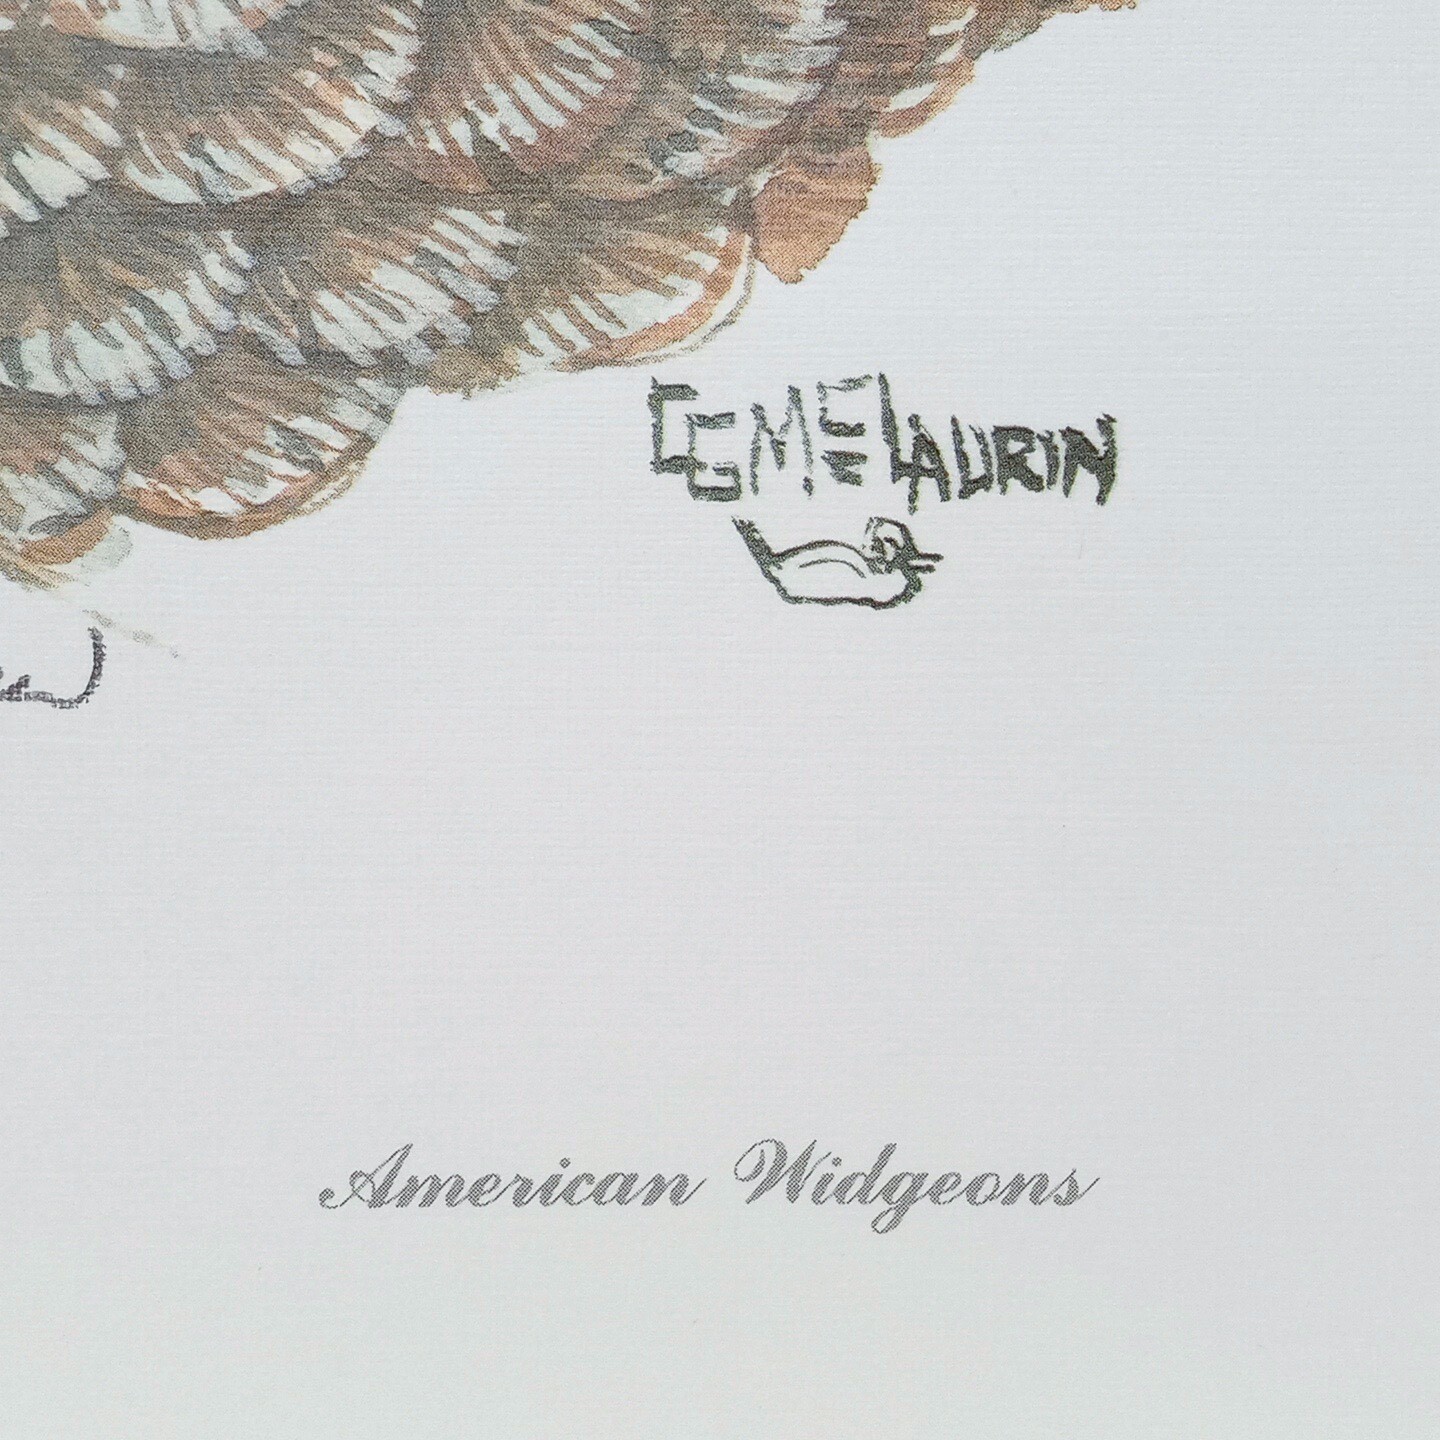 CG MELAURIN
American Widgeons